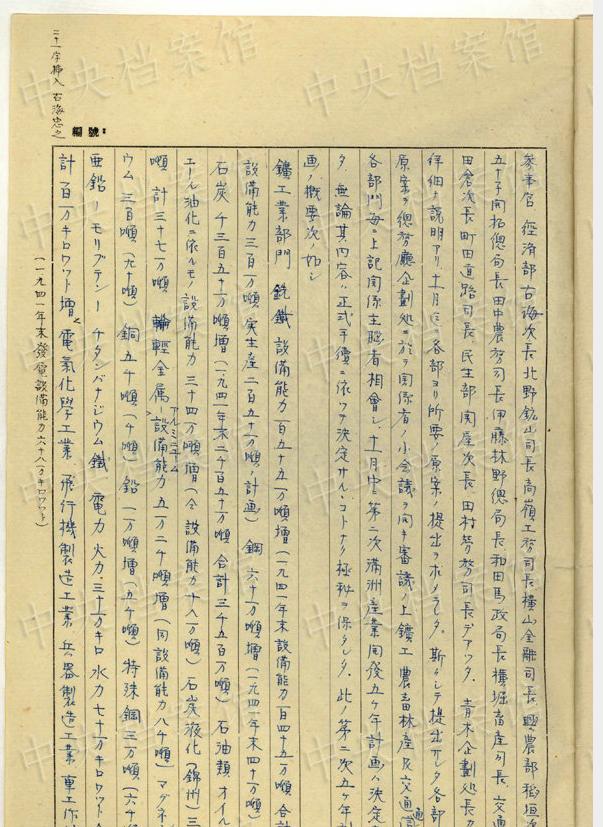 参事官 経済部 古海次長 北野鉱山司長 高嶺工務司長 横山金融司長 興農部 稲垣次
五十子開拓総局長 田中農務司長 伊藤林野総局長 和田馬政局長 横堀畜産司長 交通
田倉次長 町田道路司長 民生部 関屋次長 田村労務司長デアツタ 青木企劃処長カ
詳細ナ説明アリ 十月 各部ヨリ所要ノ原案ノ提出ヲ求メラレタ 斯クシテ提出サレタ各部
原案ヲ總務廳企劃処ニ於テ関係者ノ小会議ヲ開キ審議ノ上 鑛工 農畜林産及交通通
各部門毎ニ上記関係主脳者相會シ 十一月中 第二次満洲産業開発五ケ年計画ハ決定
タ 無論其内容ハ正式手續ニ依ツテ決定サルルコトナク極秘ヲ保タレタ 此ノ第二次五ケ年計
画ノ概要次ノ如シ
鑛工業部門 銑鐵 設備能力 百五十五万噸增(一九四一年末設備能力百四十五万噸 合計
設備能力 三百万噸 実生産二百五十万噸計画) 鋼 六十万噸增(一九四一年末四十万噸)
石炭 千三百五十万噸增(一九四一年末二千百五十万噸 合計三千五百万噸) 石油類 オイル
エール油化ニ依ルモノ 設備能力 三十四万噸增(全設備能力十八万噸) 石炭液化(錦州)三
噸 計三十七万噸 輕金属ーアルミニユーム設備能力 五万二千噸增(同設備能力八千噸) マグネシ
ウム 三百噸(九十噸) 銅 五千噸(千噸) 鉛 一万噸增(五千噸) 特殊鋼 三万噸(六千
亜鉛ーモリブデンーチタンバナジウム鐵 電力 火力三十万キロ 水力七十万キロワツト合
計百万キロワツト增 電氣化學工業 飛行機製造工業 兵器製造工業 車工作
(一九四一年末發電設備能力六十八万キロワツト)
編號:
二十一字挿入 古海忠之
中央档案馆